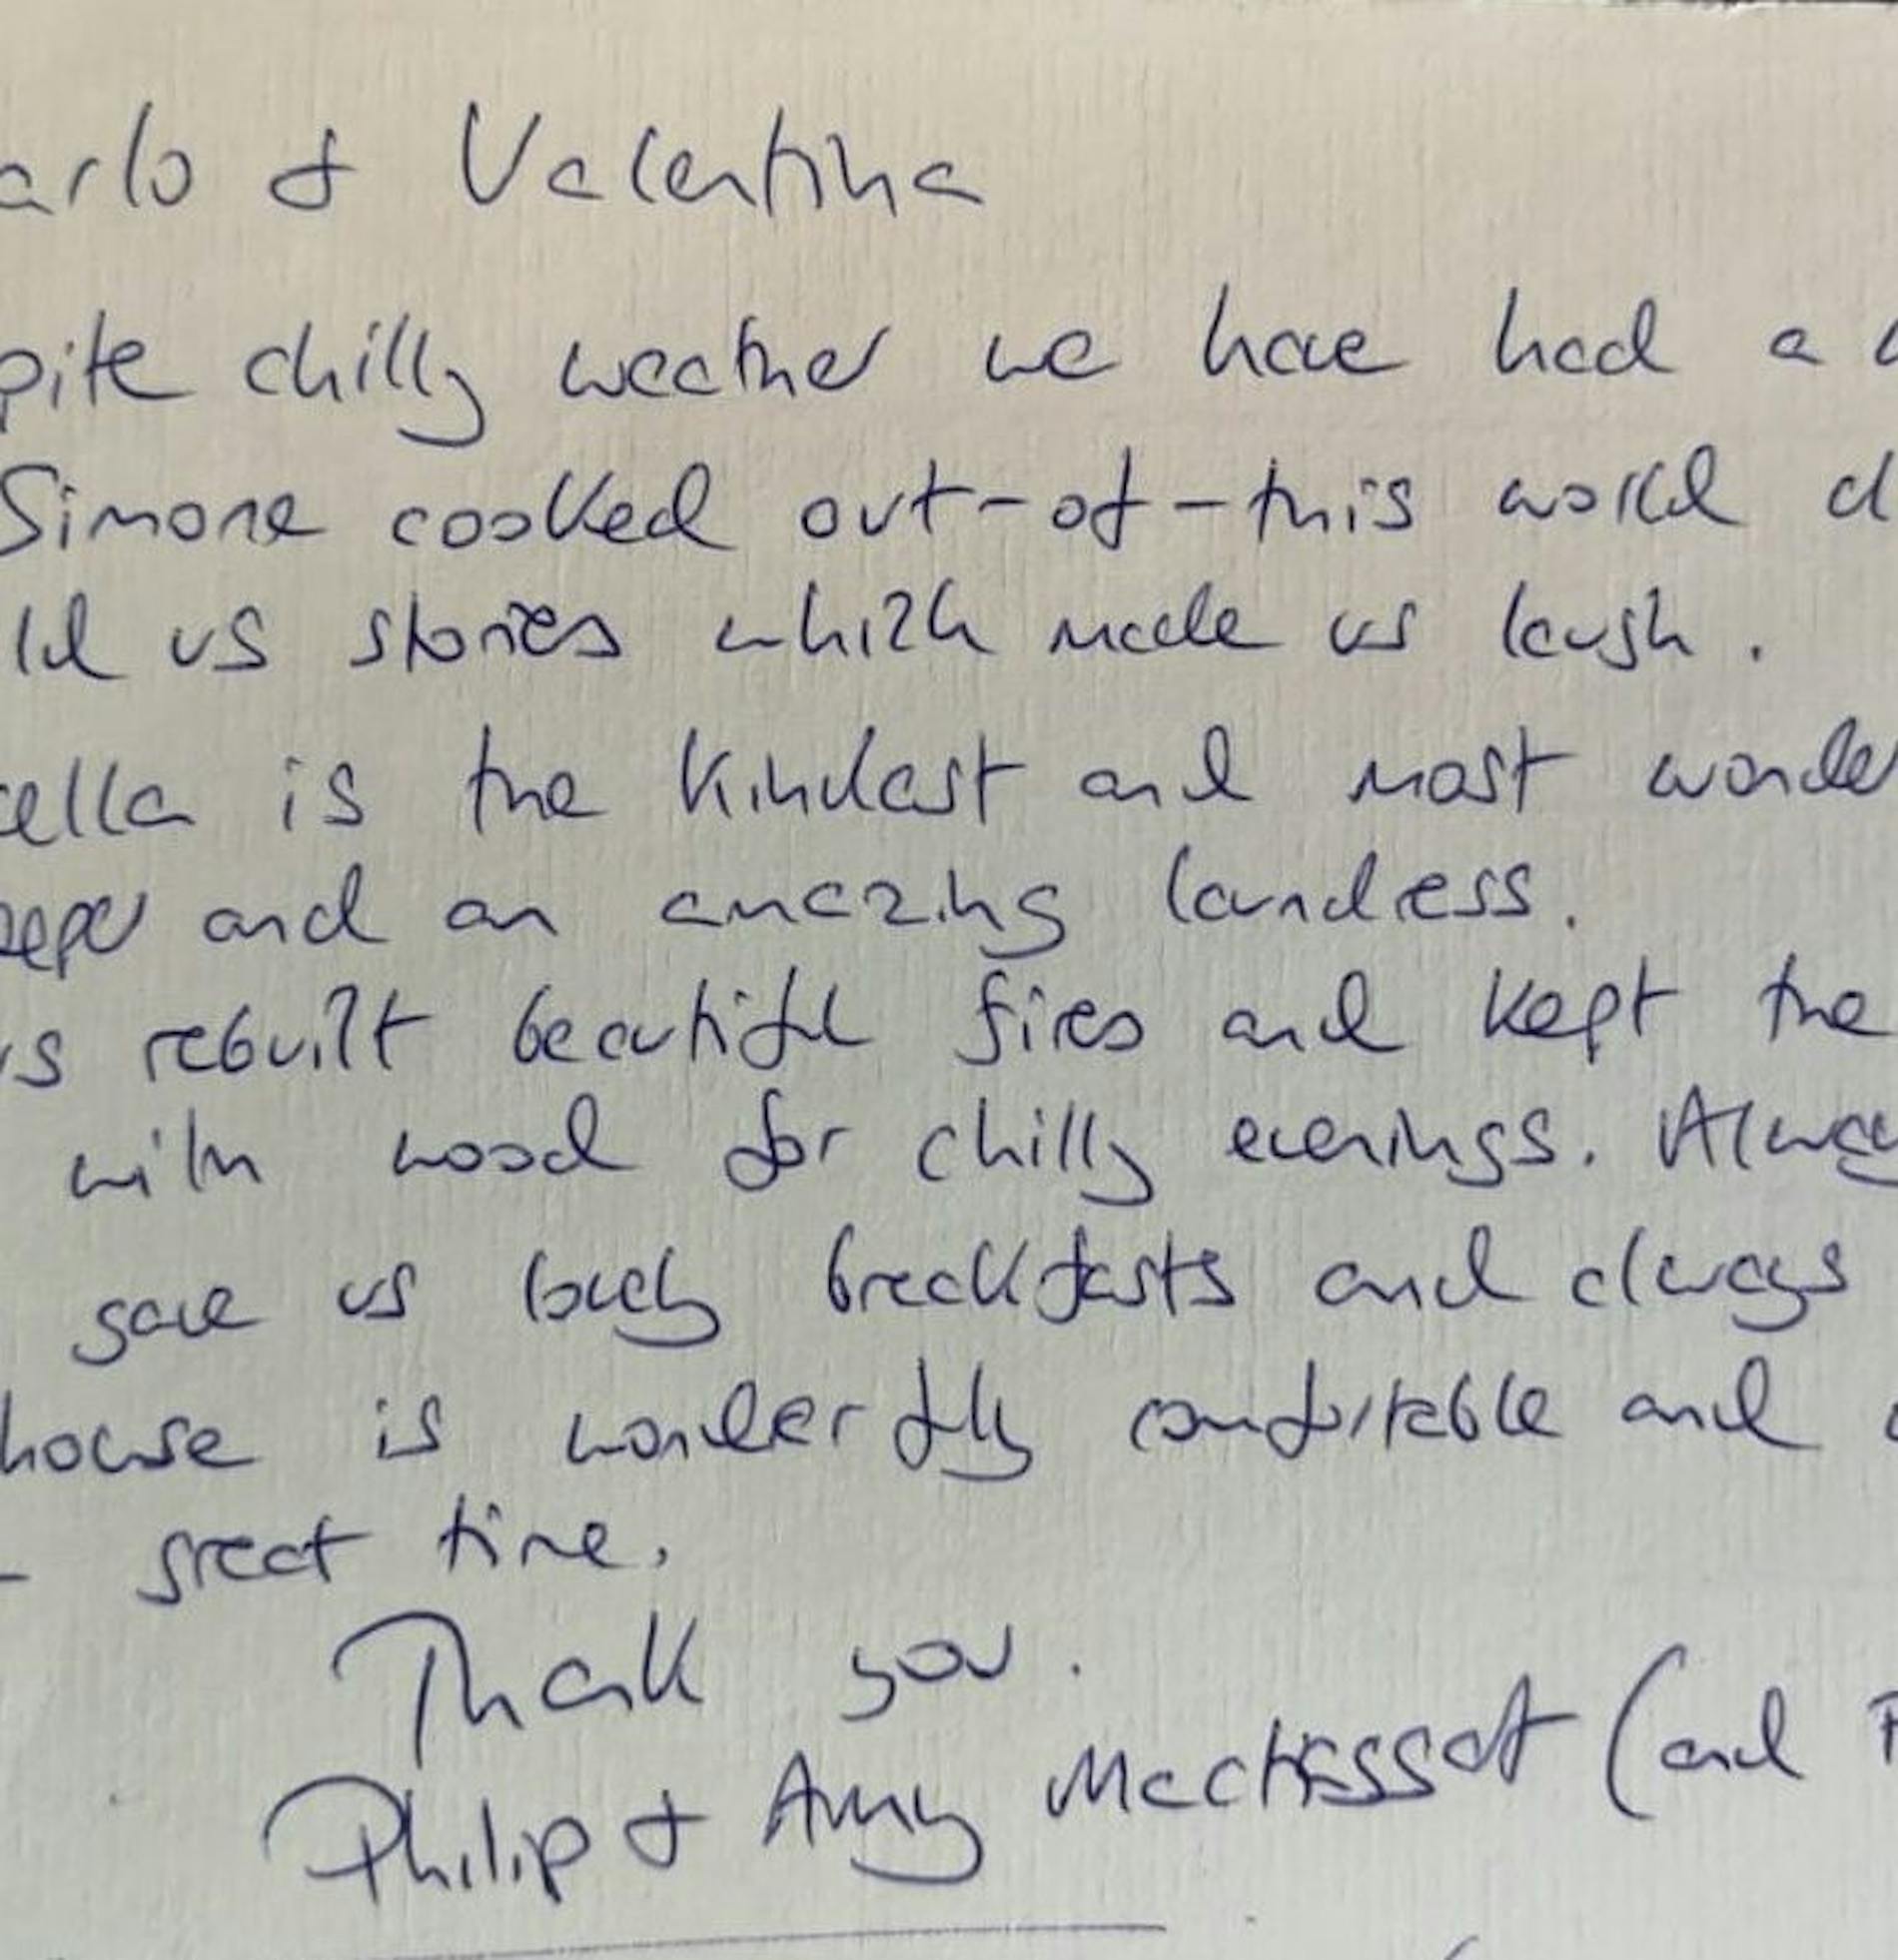 arlo & Valentina
pite chilly weather we have had a
Simone cooked out-of-this world d
ld us stories which made us laugh.
cella is the kindest and most wonder
eeper and an amazing laundress.
us rebuilt beautiful fires and kept the
with wood for chilly evenings. Alway
gave us lovely breakfasts and always
house is wonderfully comfortable and
great time.
Thank you.
Philip & Amy (and